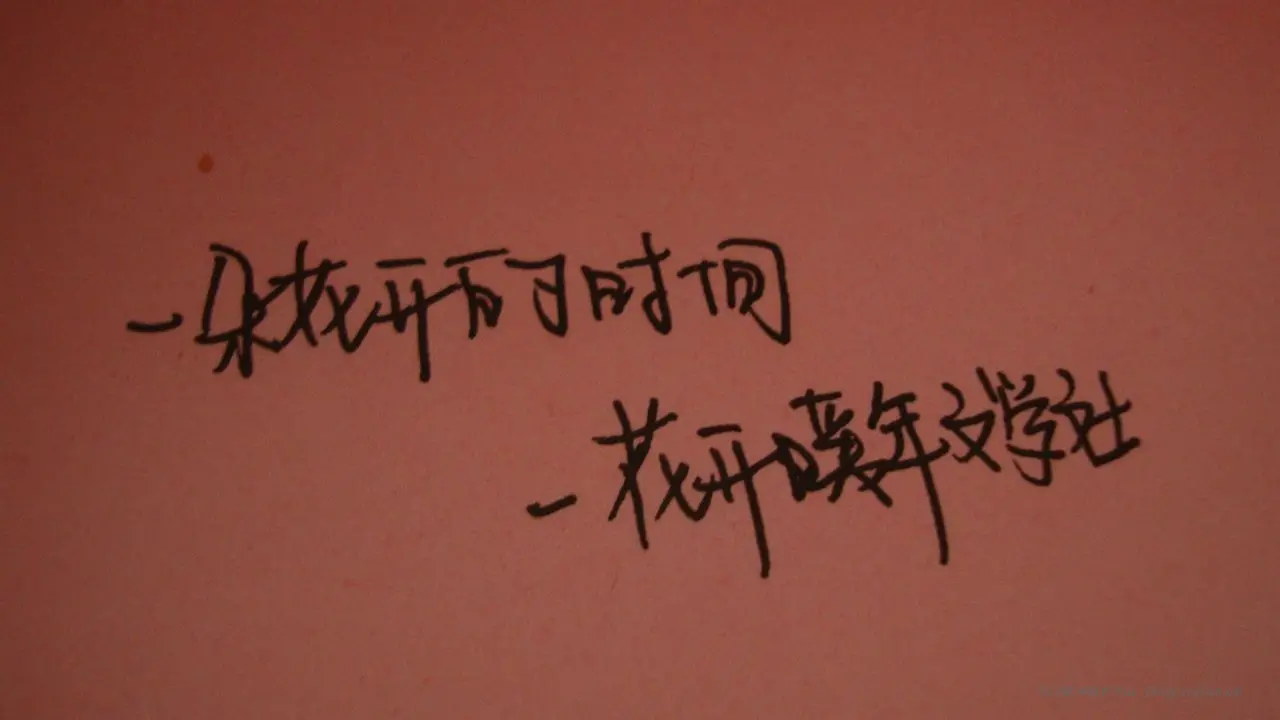 一朵花开的时间
—花开暖年文学社